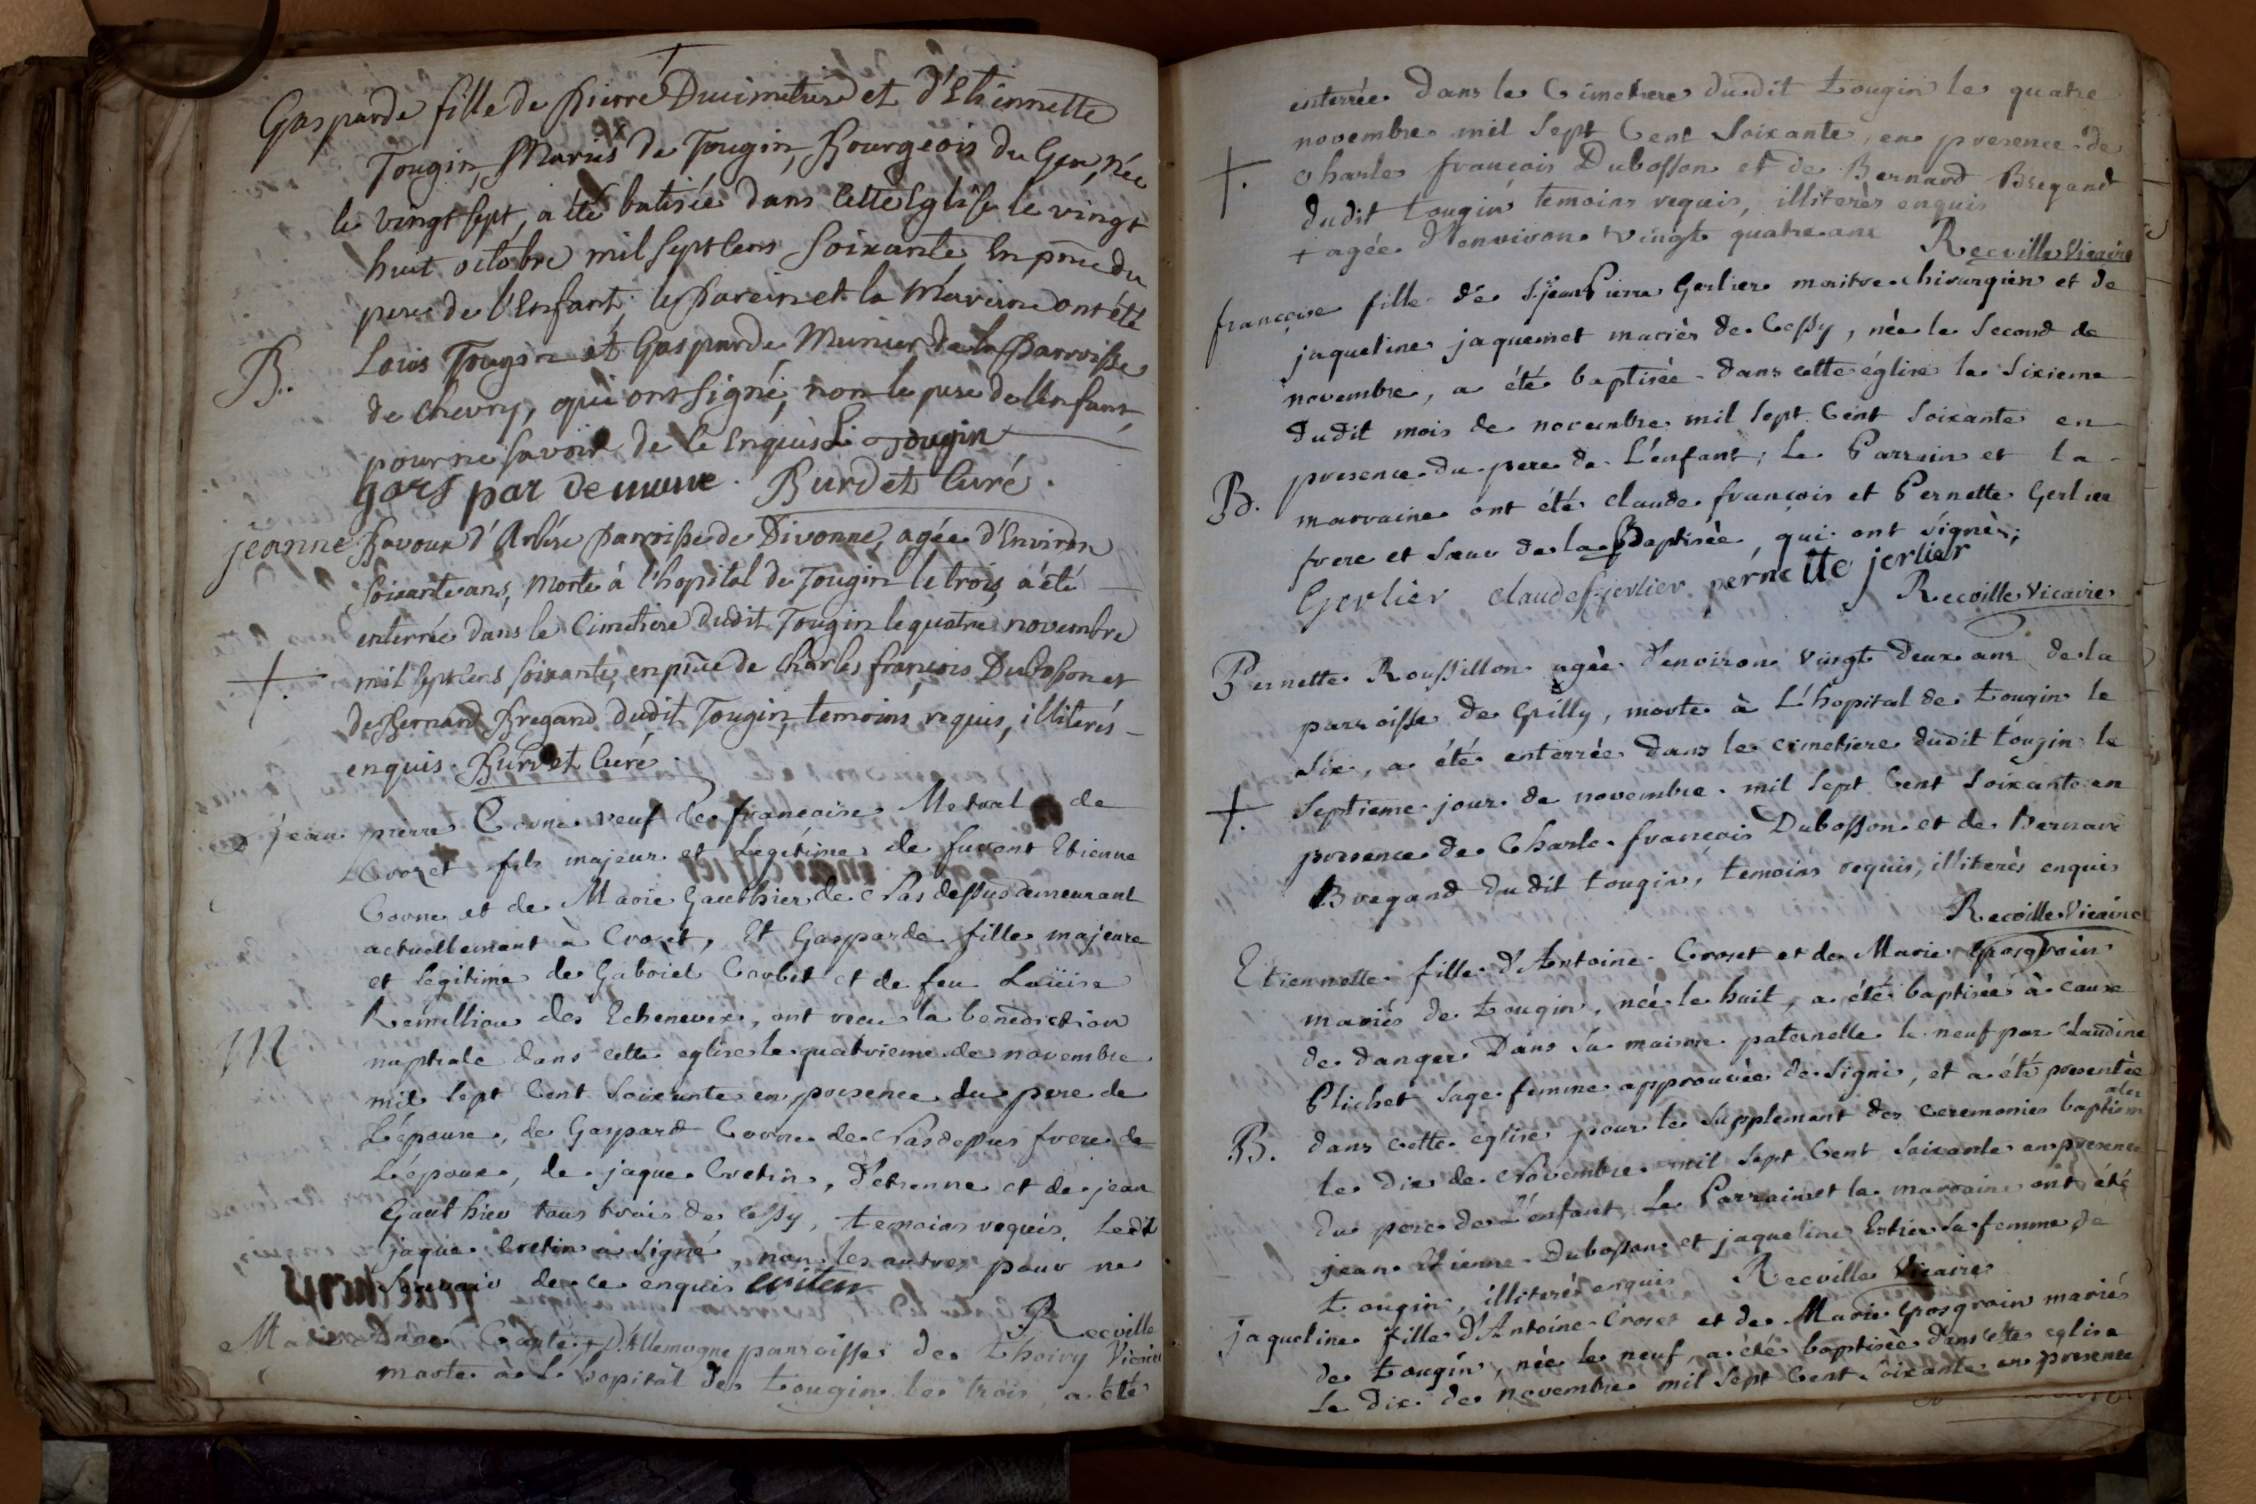 Gasparde fille de pierre Ducimetiere et d'Etiennette
Tougin, Mariés de Tougin, Bourgeois du Gex, Née
le vingt sept, a été batisée dans cette Eglise le vingt
huit octobre mil sept cens soixante En pnce du
pere de l'Enfant; le parein et la Mareine ont été
B. Loüis Tougin et Gasparde Munier de la parroisse
de chevry, qui ont signé, non le pere de l'enfant,
pour ne savoir de ce Enquis L: Tougin
gars par de Burdet Curé.
jeanne Bavoux d'Arbére parroisse de Divonne, agée d'Environ
soixante ans, morte à l'hopital de Tougin le trois, a été
enterrée dans le Cimetiere dudit Tougin le quatre novembre
+. mil sept cens soixante, en pnce de Charles françois Dubosson et
de Bernard Bregand dudit Tougin, temoins requis, illiterés
enquis. Burdet Curé.
jean pierre Corne veuf de françoise Metral de
Crozet fils majeur et Legitime de furent Etienne
Corne et de Marie Gauthier de Nas dessus demeurant
actuellement à Crozet, Et Gasparde fille majeure
et legitime de Gabriel Corbet et de feu Loüise
Remillion des Echenevex, ont reçu la benediction
M nuptiale dans cette eglise le quatrieme de novembre
mil sept Cent soixante en presence du pere de
L'épouse, de Gaspard Corne de Nas dessus frere de
L'époux, de jaque Cretin, d'étienne et de jean
Gauthier tous trois de Cessy, temoins requis. Ledit
jaque Cretin a signé, non les autres pour ne
sçavoir de ce enquis
Recville
Marie Anne + D'Allemogne parroisse de Thoiry Vicaire
morte à L'hopital de Tougin le trois a été
enterrée dans le Cimetiere dudit Tougin le quatre
novembre mil sept Cent soixante, en presence de
+. Charle françois Dubosson et de Bernard Bregand
dudit Tougin temoins requis, illiterés enquis
+ agée d'environ vingt quatre ans Recville Vicaire
françoise fille de S. jean Pierre Gerlier maitre chirurgien et de
jaqueline jaquemet mariés de Cessy, née le second de
novembre, a été baptisée dans cette église le sixieme
dudit mois de novembre mil sept Cent soixante en
presence du pere de L'enfant; Le Parrain et la
B. marraine ont été claude françois et Pernette Gerlier
frere et sœur de la Baptisée, qui ont signés;
Gerlier claude f gerlier pernette jerlier
Recville Vicaire
Pernette Roussillon agée d'environ vingt deux ans de la
parroisse de Grilly, morte à L'hopital de Tougin le
six, a été enterrée dans le cimetiere dudit tougin le
+. septieme jour de novembre mil sept Cent soixante en
presence de Charle françois Dubosson et de Bernard
Bregand dudit tougin, temoins requis, illiterés enquis
Recville Vicaire
Etiennette fille d'Antoine Crozet et de Marie Grosgrain
mariés de Tougin, née le huit, a été baptisée à cause
de danger Dans sa maison paternelle le neuf par Claudine
Plichet sage femme approuvée de Signi, et a été presentée
B. dans cette eglise pour le supplement des ceremonies baptismales
le dix de Novembre mil sept Cent soixante en presence
du pere de L'enfant. Le Parrain et la marraine ont été
jean Etienne Dubosson et jaqueline sa femme de
Tougin, illiterés enquis Recville Vicaire
jaqueline fille d'Antoine Crozet et de Marie Grosgrain mariés
de Tougin, née le neuf, a été baptisée dans cette eglise
le dix de novembre mil sept Cent soixante en presence